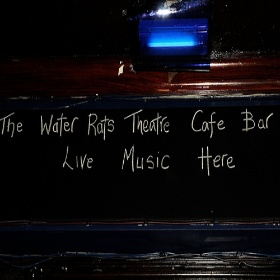 The Water Rats Theatre Cafe Bar
Live Music Here